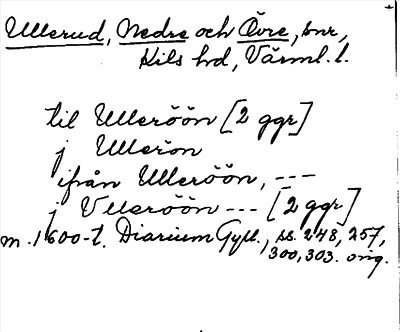 Ullerud, Nedre och Övre, snr,
Kils hd, Värml. l.
till Ulleröön [2 ggr]
j Ullerön
ifrån Ulleröön, ---
j Vlleröön --- [2 ggr]
m. 1600-t. Diarium Gyll., ss. 248, 257,
300, 303. orig.